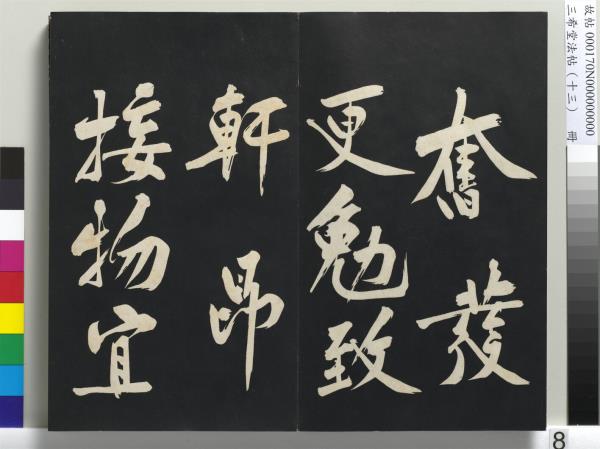 奮發
更勉致
軒昂
接物宜
故帖 000170N000000000
三希堂法帖（十三） 冊
8